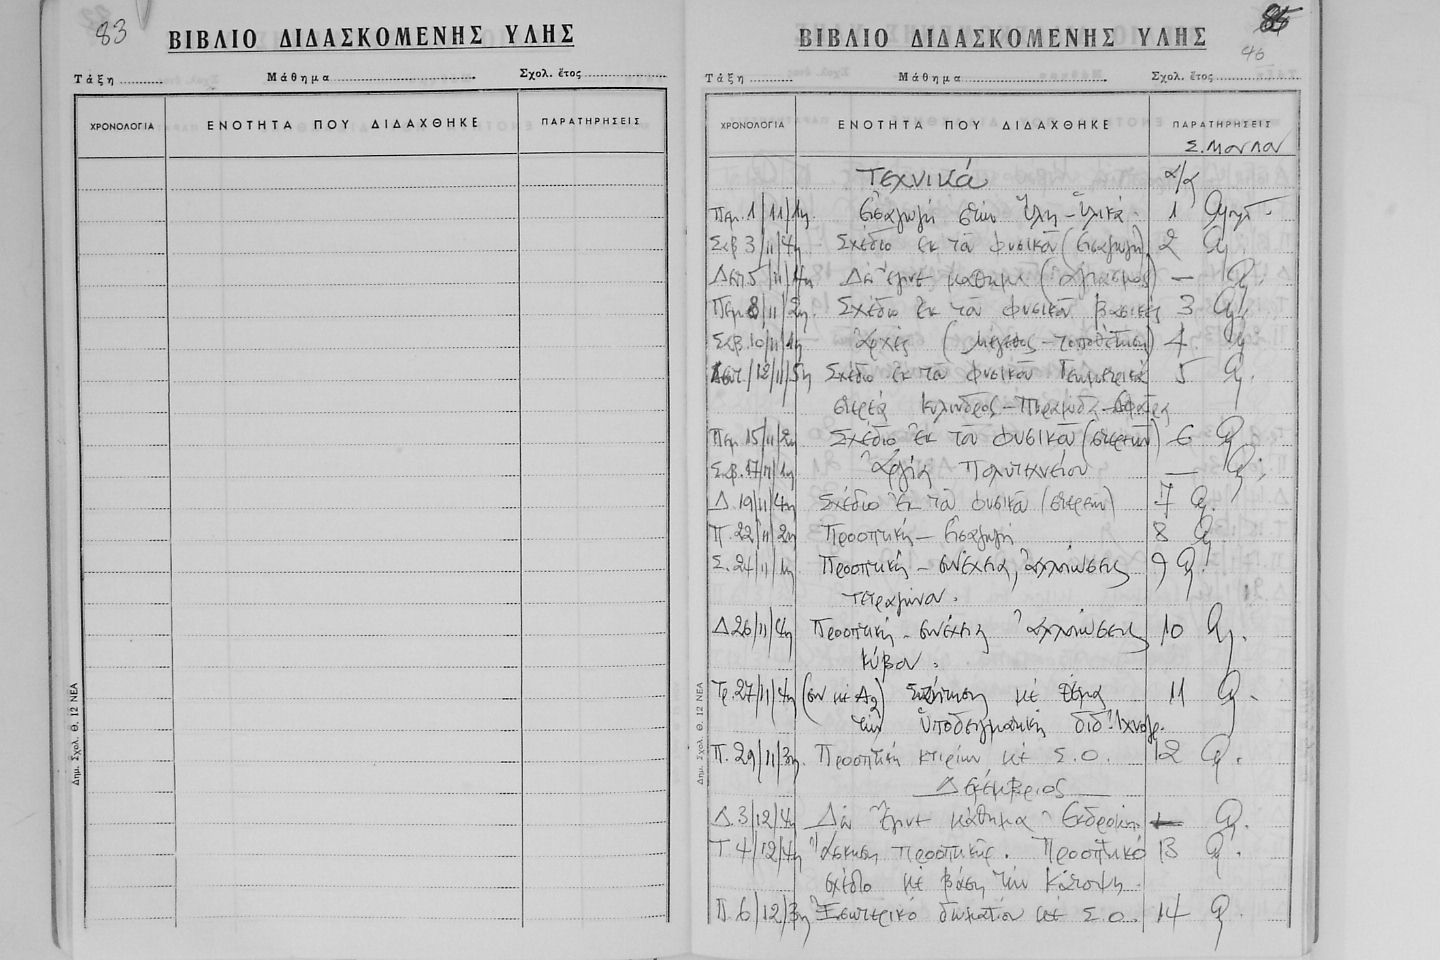 83
ΒΙΒΛΙΟ ΔΙΔΑΣΚΟΜΕΝΗΣ ΥΛΗΣ
Τάξη Μάθημα Σχολ. ἔτος
ΧΡΟΝΟΛΟΓΙΑ ΕΝΟΤΗΤΑ ΠΟΥ ΔΙΔΑΧΘΗΚΕ ΠΑΡΑΤΗΡΗΣΕΙΣ
Δημ. Σχολ. Θ. 12 ΝΕΑ
46
ΒΙΒΛΙΟ ΔΙΔΑΣΚΟΜΕΝΗΣ ΥΛΗΣ
Τάξη Μάθημα Σχολ. ἔτος
ΧΡΟΝΟΛΟΓΙΑ ΕΝΟΤΗΤΑ ΠΟΥ ΔΙΔΑΧΘΗΚΕ ΠΑΡΑΤΗΡΗΣΕΙΣ
Τεχνικά α/α
Πεμ. 1/11/1η Εἰσαγωγή στήν Ὕλη - Ὑλικά. 1
Σαβ 3/11/4η - Σχέδιο ἐκ τοῦ φυσικοῦ (Εἰσαγωγή) 2
Δευ. 5/11/4η Δέν ἔγινε μάθημα (ἁγιασμός) —
Πεμ 8/11/2η. Σχέδιο ἐκ τοῦ φυσικοῦ βασικές 3
Σαβ. 10/11/1η ἀρχές (μέγεθος - τοποθέτηση) 4
Δευτ. /12/11/5η Σχέδιο ἐκ τοῦ φυσικοῦ Γεωμετρικά 5
στερεά Κύλινδρος - Πυραμίδα - Σφαῖρα
Πεμ 15/11/2η Σχέδιο ἐκ τοῦ φυσικοῦ (στερεῶν) 6
Σαβ. 17/11/1η Ἀργία Πολυτεχνείου —
Δ. 19/11/4η Σχέδιο ἐκ τοῦ φυσικοῦ (στερεῶν) 7
Π. 22/11/2η Προοπτική - Εἰσαγωγή 8
Σ. 24/11/1η Προοπτική - συνέχεια, ἀλλοιώσεις 9
τετραγώνου.
Δ 26/11/4η Προοπτική - συνέχεια ἀλλοιώσεις 10
κύβου.
Τρ. 27/11/4η (συν μέ Α2) Συζήτηση μέ θέμα 11
τήν ὑποδειγματική διδ. Ἰχνογρ.
Π. 29/11/3η. Προοπτική κτιρίων μέ Σ.Ο. 12
Δεκέμβριος
Δ. 3/12/4η Δέν ἔγινε μάθημα Ἐκδρομή —
Τ. 4/12/4η Ἄσκηση προοπτικῆς. Προοπτικό 13
σχέδιο μέ βάση τήν Κάτοψη.
Π. 6/12/3η Ἐσωτερικό δωματίου μέ Σ.Ο. 14
Δημ. Σχολ. Θ. 12 ΝΕΑ